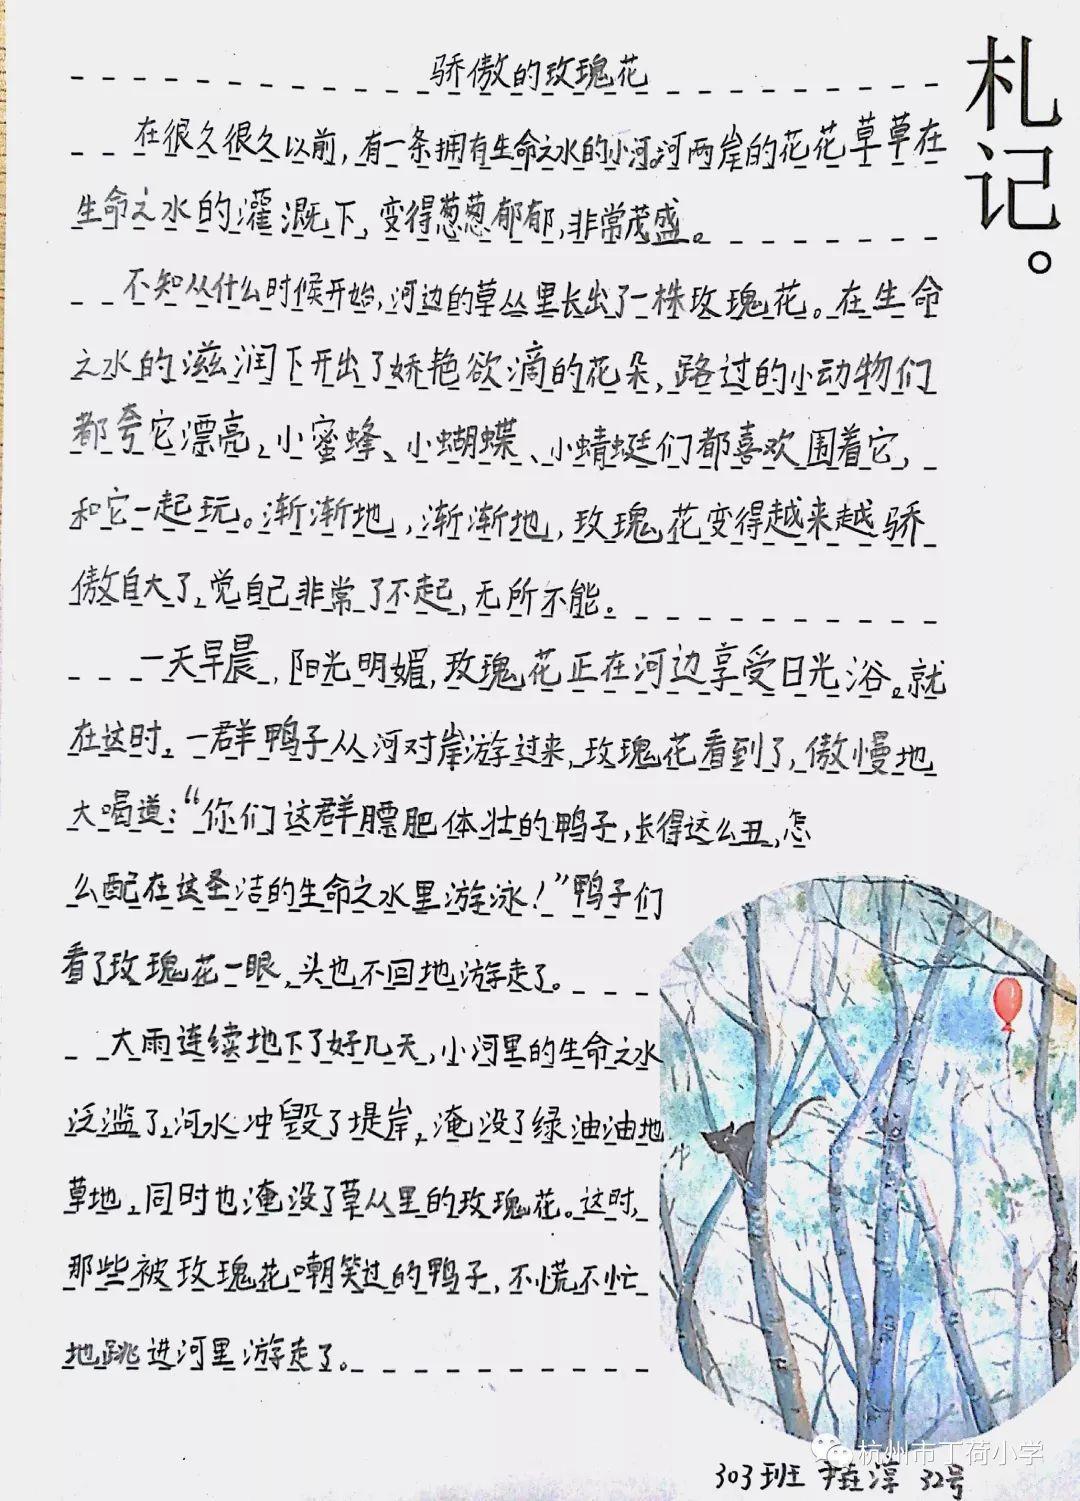 札记。
骄傲的玫瑰花
在很久很久以前,有一条拥有生命之水的小河。河两岸的花花草草在
生命之水的灌溉下,变得葱葱郁郁,非常茂盛。
不知从什么时候开始,河边的草丛里长出了一株玫瑰花。在生命
之水的滋润下开出了娇艳欲滴的花朵,路过的小动物们
都夸它漂亮,小蜜蜂、小蝴蝶、小蜻蜓们都喜欢围着它,
和它一起玩。渐渐地,渐渐地,玫瑰花变得越来越骄
傲自大了,觉自己非常了不起,无所不能。
一天早晨,阳光明媚,玫瑰花正在河边享受日光浴。就
在这时,一群鸭子从河对岸游过来,玫瑰花看到了,傲慢地
大喝道:“你们这群膘肥体壮的鸭子,长得这么丑,怎
么配在这圣洁的生命之水里游泳!”鸭子们
看了玫瑰花一眼,头也不回地游走了。
大雨连续地下了好几天,小河里的生命之水
泛滥了,河水冲毁了堤岸,淹没了绿油油地
草地,同时也淹没了草从里的玫瑰花。这时,
那些被玫瑰花嘲笑过的鸭子,不慌不忙
地跳进河里游走了。
杭州市丁荷小学
303班 尹 淳 32号